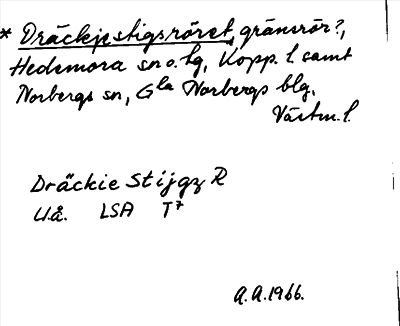 * Dräckjestigsröret, gränsrör?,
Hedemora sn o. lg, Kopp. l. samt
Norbergs sn, Gla Norbergs blg.
Västm. l.
Dräckie Stijgz R
U.å. LSA T7
A.A. 1966.